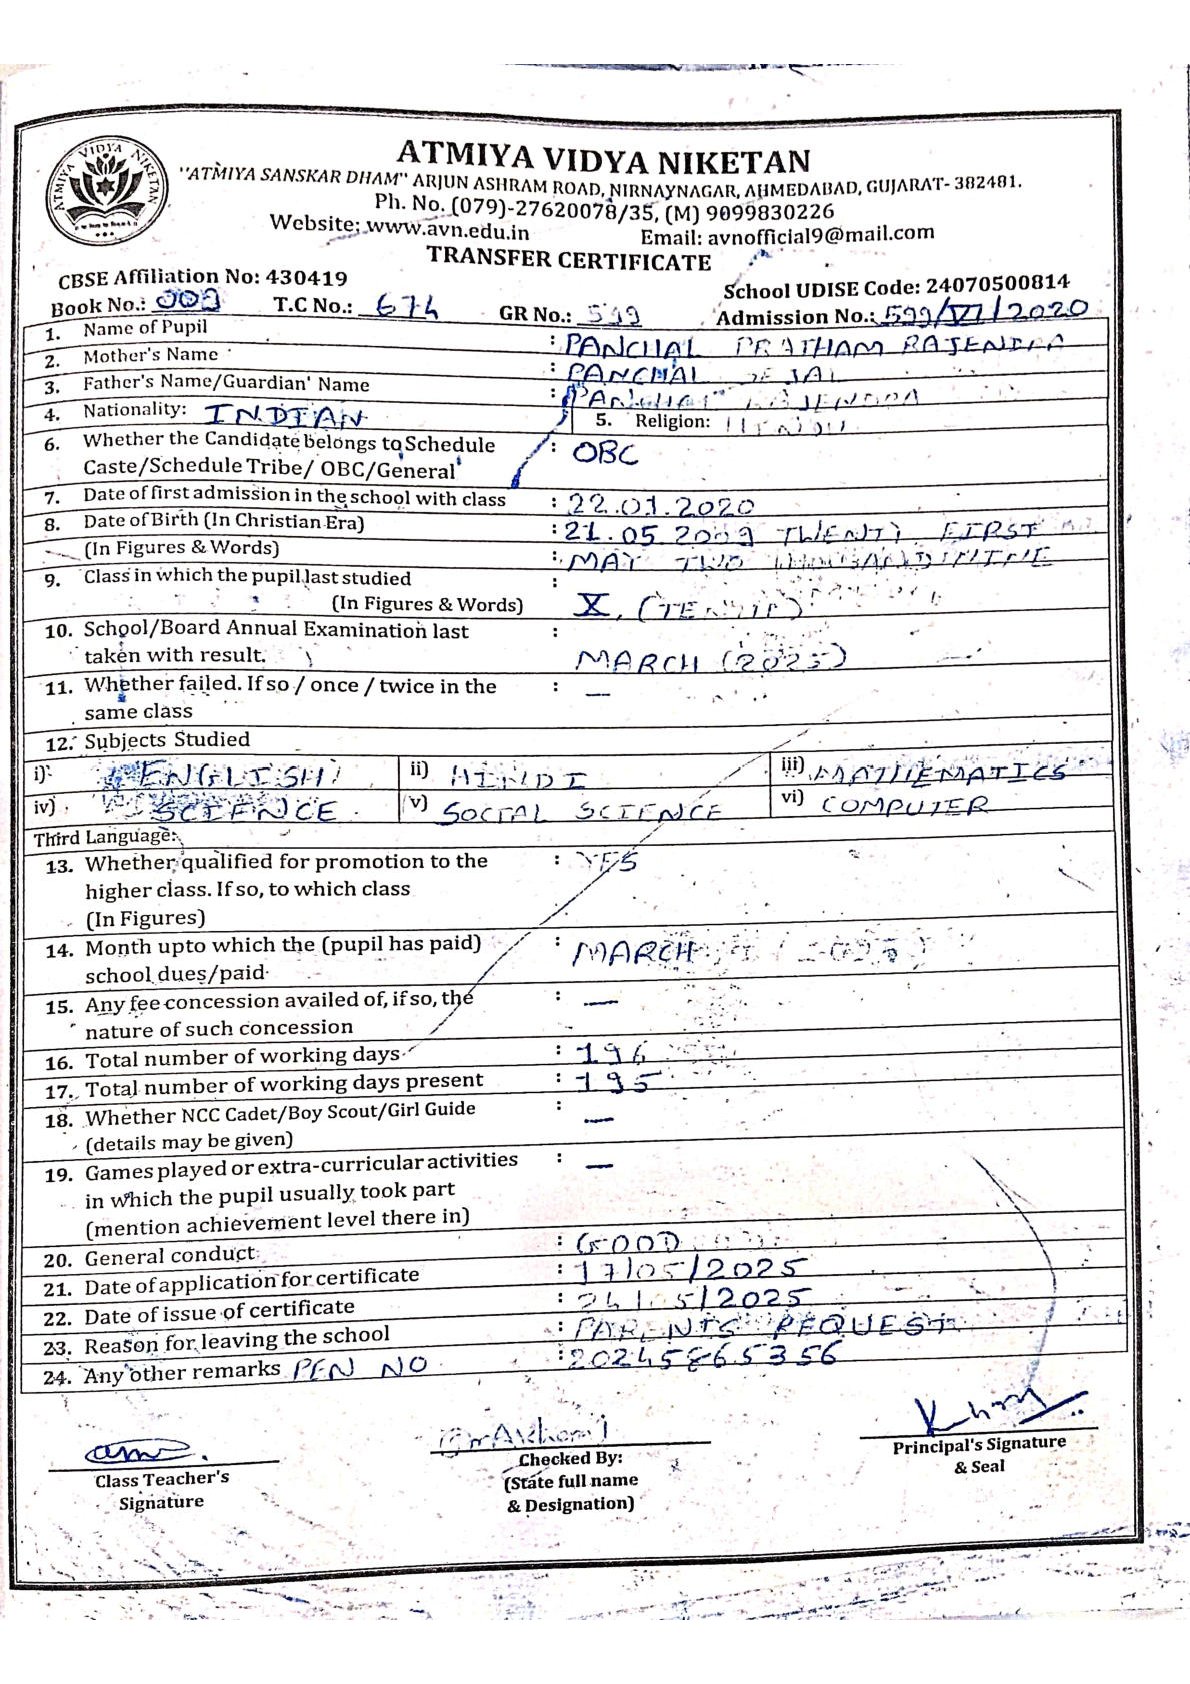 ATMIYA VIDYA NIKETAN
ATMIYA VIDYA NIKETAN
"ATMIYA SANSKAR DHAM" ARJUN ASHRAM ROAD, NIRNAYNAGAR, AHMEDABAD, GUJARAT- 382481.
Ph. No. (079)-27620078/35, (M) 9099830226
Website: www.avn.edu.in Email: avnofficial9@mail.com
TRANSFER CERTIFICATE
CBSE Affiliation No: 430419 School UDISE Code: 24070500814
Book No.: 009 T.C No.: 674 GR No.: 599 Admission No.: 599/VI/2020
1. Name of Pupil : PANCHAL PRATHAM RAJENDRA
2. Mother's Name : PANCHAL SEJAL
3. Father's Name/Guardian' Name : PANCHAL RAJENDRA
4. Nationality: INDIAN 5. Religion: HINDU
6. Whether the Candidate belongs to Schedule : OBC
Caste/Schedule Tribe/ OBC/General
7. Date of first admission in the school with class : 22.01.2020
8. Date of Birth (In Christian Era) : 21.05.2009 TWENTY FIRST
(In Figures & Words) : MAY TWO THOUSAND NINE
9. Class in which the pupil last studied :
(In Figures & Words) X, (TENTH)
10. School/Board Annual Examination last :
taken with result. MARCH (2025)
11. Whether failed. If so / once / twice in the : —
same class
12. Subjects Studied
i) ENGLISH ii) HINDI iii) MATHEMATICS
iv) SCIENCE v) SOCIAL SCIENCE vi) COMPUTER
Third Language:
13. Whether qualified for promotion to the : YES
higher class. If so, to which class
(In Figures)
14. Month upto which the (pupil has paid) : MARCH (2025)
school dues/paid
15. Any fee concession availed of, if so, the : —
nature of such concession
16. Total number of working days : 196
17. Total number of working days present : 195
18. Whether NCC Cadet/Boy Scout/Girl Guide : —
(details may be given)
19. Games played or extra-curricular activities : —
in which the pupil usually took part
(mention achievement level there in)
20. General conduct : GOOD
21. Date of application for certificate : 17/05/2025
22. Date of issue of certificate : 24/05/2025
23. Reason for leaving the school : PARENTS REQUEST
24. Any other remarks PEN NO : 20245865356
Class Teacher's
Signature
Checked By:
(State full name
& Designation)
Principal's Signature
& Seal